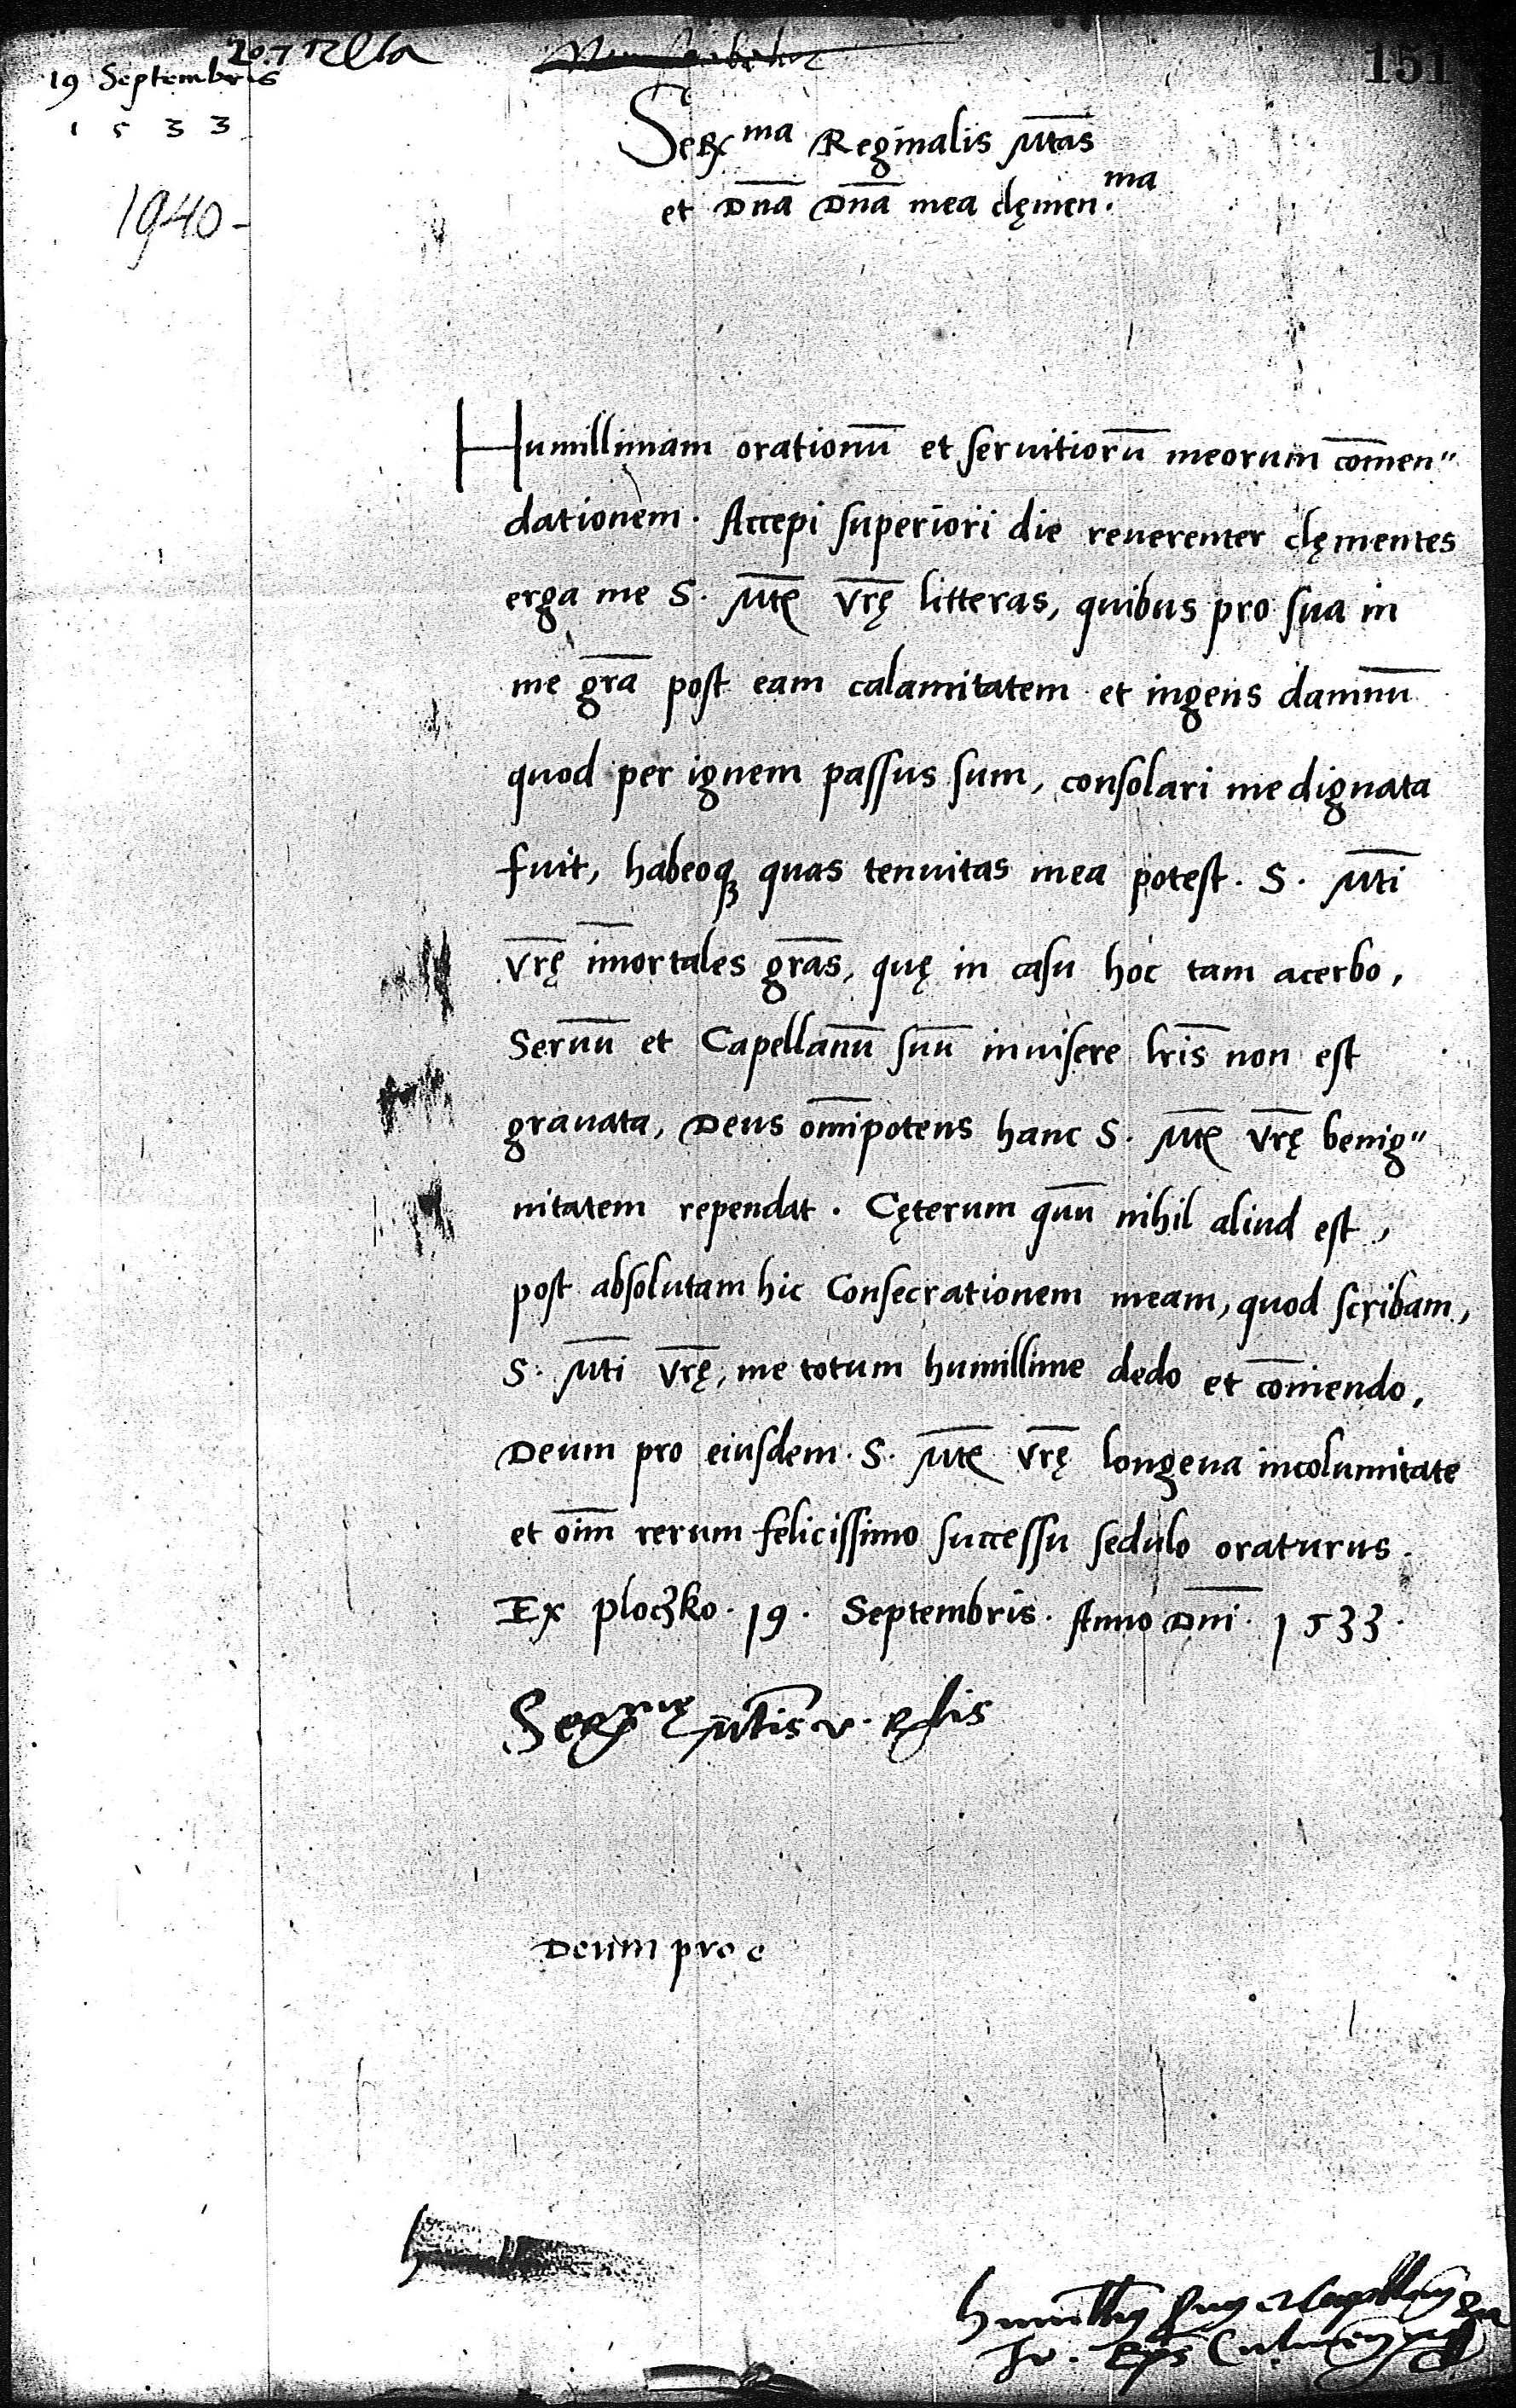 19 Septembris
1 5 3 3
151
1940-
Serma Reginalis Mtas
et Dna Dna mea clęmen.ma
Humillimam orationū et seruitiorū meorum comen"
dationem. Accepi superiori die reuerenter clęmentes
erga me S. Mtę vrę litteras, quibus pro sua in
me gra post eam calamitatem et ingens damnū
quod per ignem passus sum, consolari me dignata
fuit, habeoq quas tenuitas mea potest. S. Mti
vrę imortales gras, quę in casu hoc tam acerbo,
Seruū et Capellanū suū inuisere lris non est
grauata, Deus omipotens hanc S. Mtę vrę benig"
nitatem rependat. Cęterum quū nihil aliud est,
post absolutam hic Consecrationem meam, quod scribam,
S. Mti vrę, me totum humillime dedo et comendo,
Deum pro eiusdem. S. Mtę vrę longeua incolumitate
et oim rerum felicissimo successu sedulo oraturus.
Ex ploczko. 19. Septembris. Anno Dni. 1533.
Sermę Mtis v. Rglis
Deum pro e
Jo. Eps Culmen